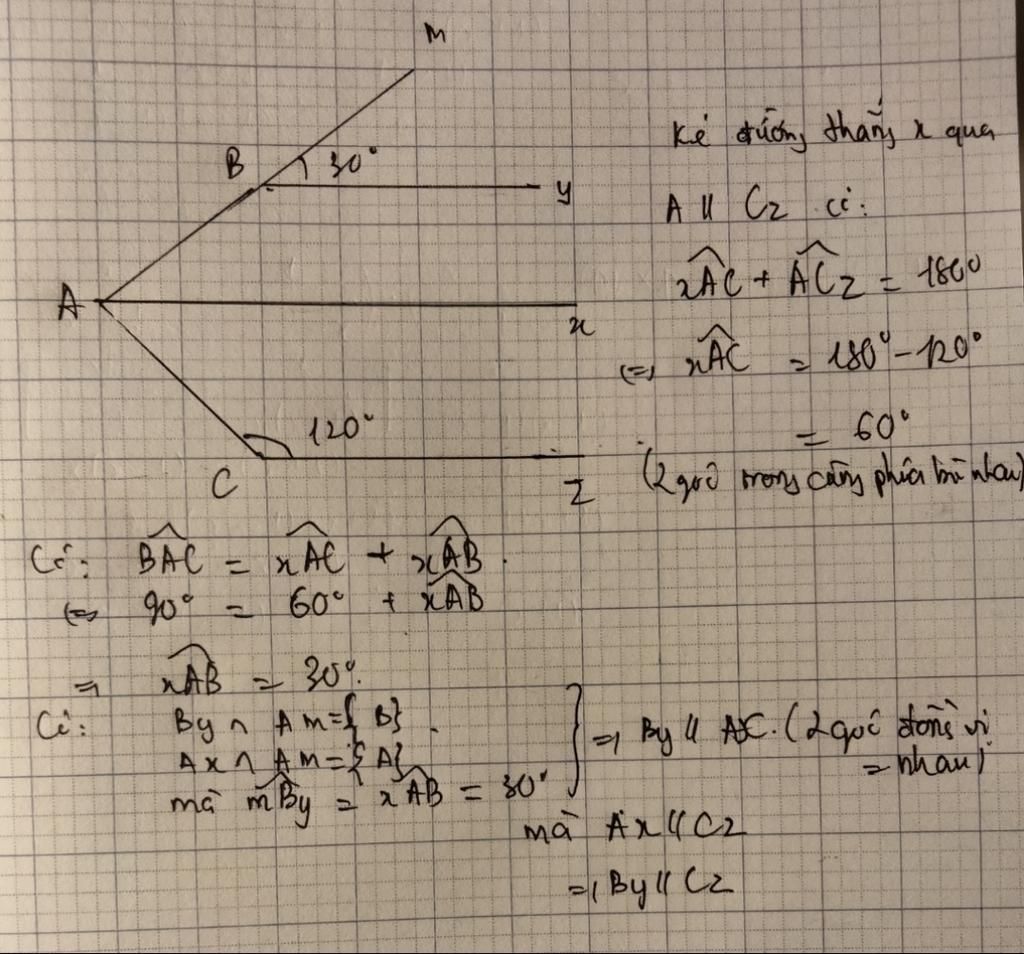 M
B 30°
y
A
x
120°
C
z
Kẻ đường thẳng x qua
A // Cz có:
xAC + ACz = 180°
<=> xAC = 180° - 120°
= 60°
(2 góc trong cùng phía bù nhau)
Có: BAC = xAC + xAB.
<=> 90° = 60° + xAB
=> xAB = 30°.
Có: By ∩ Am = {B}.
Ax ∩ Am = {A}
mà mBy = xAB = 30°
=> By // AC. (2 góc đồng vị
= nhau)
mà Ax // Cz
=> By // Cz